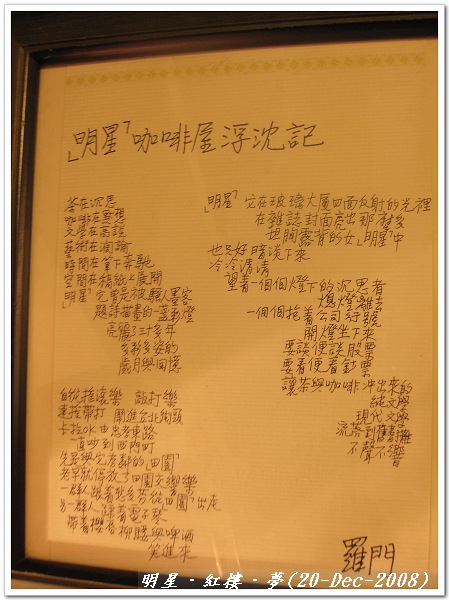 「明星」咖啡屋浮沈記
茶在沉思
咖啡在默想
文學在高談
藝術在濶論
時間在筆下奔馳
空間在稿紙上展開
「明星」它曾是被騷人墨客
題詩描畫的一盞彩燈
亮麗了二十多年
多彩多姿的
歲月與回憶
自從搖滾樂 敲打樂
連推帶打 鬧進台北街頭
卡拉OK由忠孝東路
一直吵到西門町
先是與它為鄰的「田園」
老早就停放了田園交響樂
一群人跟著貝多芬從「田園」出走
另一群人踩著電子琴
帶著櫻唇柳腰與啤酒
笑進來
「明星」它在玻璃大厦四面反射的光裡
在雜誌封面亮出那麼多
坦胸露背的女「明星」中
也只好暗淡下來
冷冷清清
望著一個個燈下的沉思者
熄燈離去
一個個抱著公司行號
開燈坐下來
要談便談股票
要看便看鈔票
讓茶與咖啡沖出來的
純文學
現代文學
流落到舊書攤
不聲不響
羅門
明星‧紅樓‧夢(20-Dec-2008)